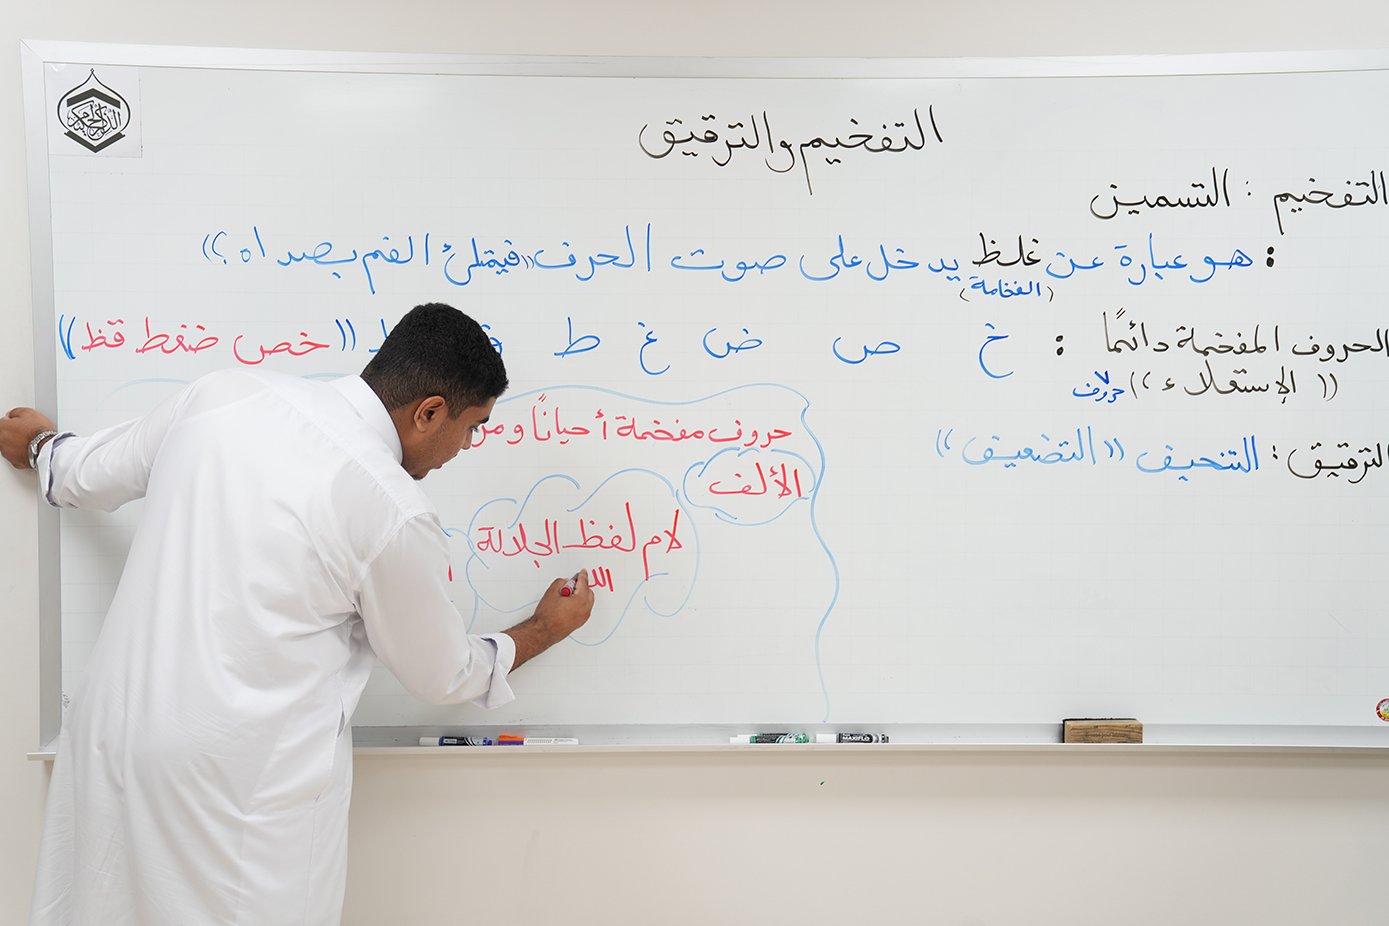 التفخيم والترقيق
التفخيم : التسمين
: هو عبارة عن غلظ يدخل على صوت الحرف ((فيمتلئ الفم بصداه))
(الفخامة)
الحروف المفخمة دائمًا : خ ص ض غ ط ((خص ضغط قظ))
((الإستعلاء)) حروف
الترقيق : التنحيف ((التضعيف))
حروف مفخمة أحيانًا
الألف
لام لفظ الجلالة
MAXIFLO